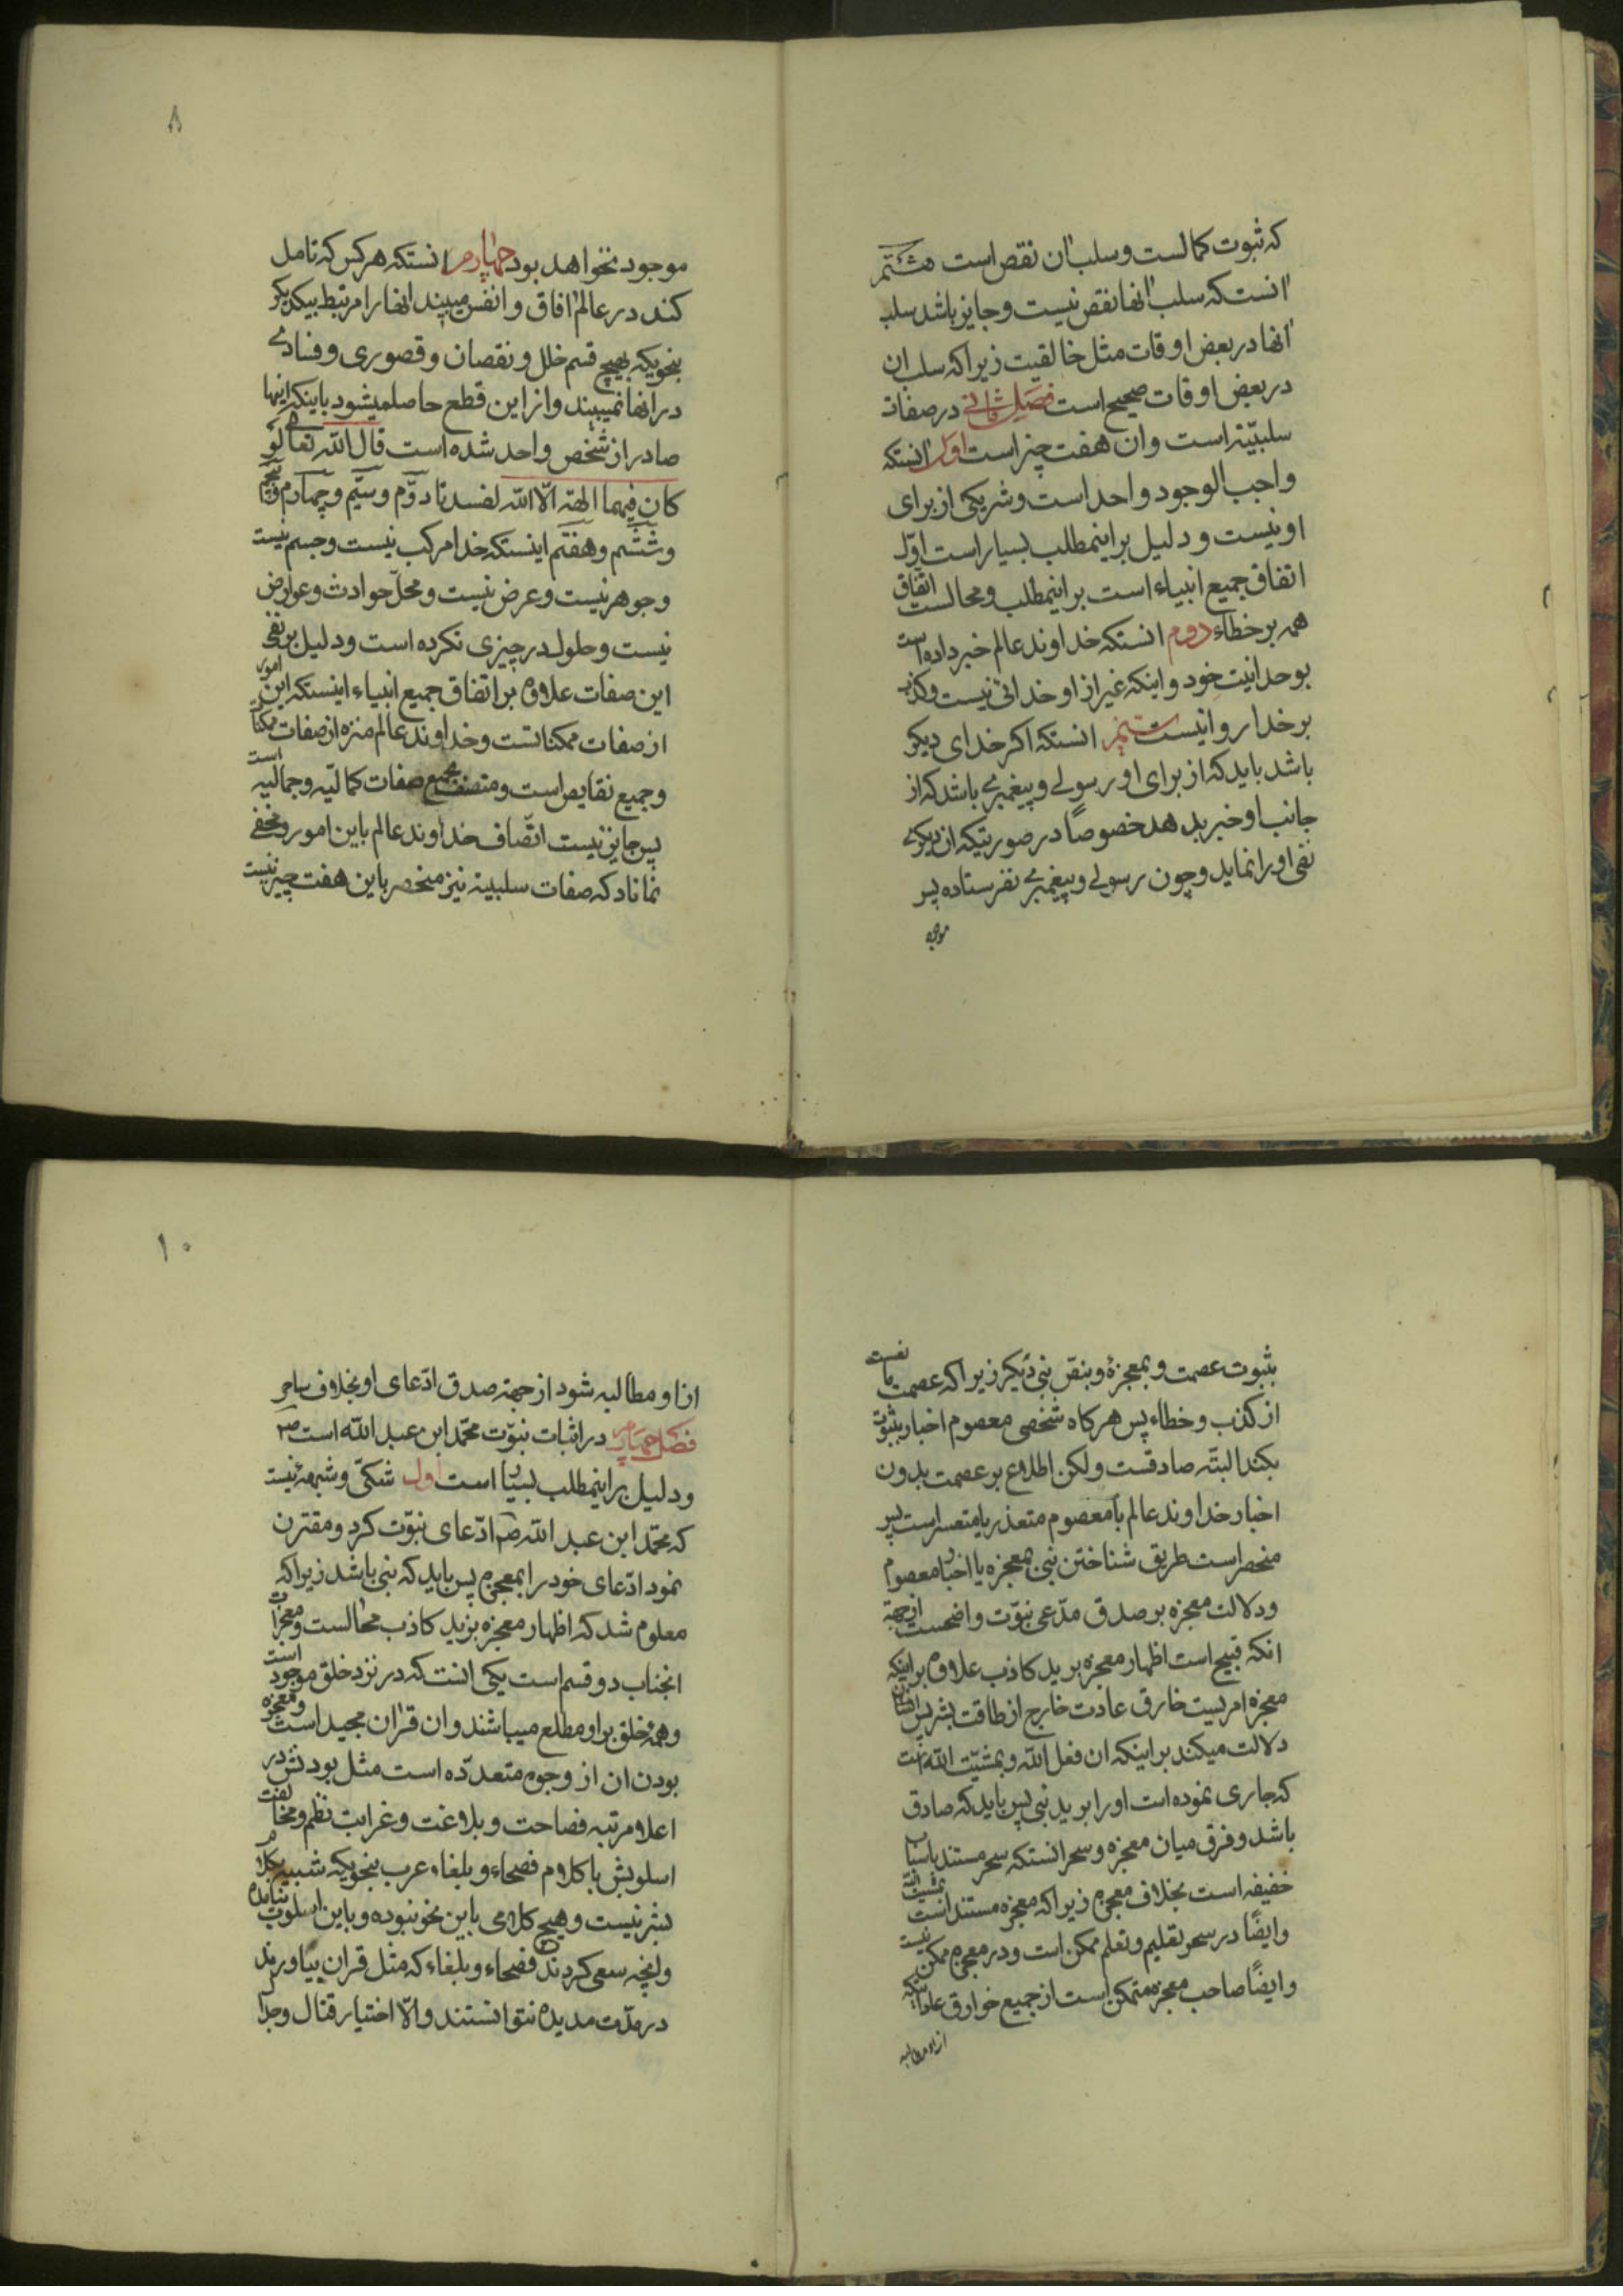 که ثبوت کمالست و سلب ان نقص است هشتم
انستکه سلب انها نقص نیست و جایز باشد سلب
انها در بعض اوقات مثل خالقیت زیرا که سلب ان
در بعض اوقات صحیح است فصل ثانی در صفات
سلبیّه است و ان هفت چیز است اول انستکه
واجب الوجود واحد است و شریکی از برای
او نیست و دلیل براینمطلب بسیار است اوّل
اتفاق جمیع انبیاء است براینمطلب و محالست اتفاق
همه بر خطاء دوم انستکه خداوند عالم خبر داده است
بوحدانیت خود و اینکه غیر از او خدائی نیست و کذب
بر خدا روا نیست سیّم انستکه اکر خدای دیکر
باشد باید که از برای او رسولی و پیغمبری باشد که از
جانب او خبر بدهد خصوصاً در صورتیکه ان دیکری
نفی او را نماید و چون رسولی و پیغمبری نفرستاده پس
موجود
۸
موجود نخواهد بود چهارم انستکه هر کس که تامل
کند در عالم افاق و انفس میبیند انها را مرتبط بیکدیکر
بنحویکه بهیچ قسم خلل و نقصان و قصوری و فسادی
در انها نمیبیند و از این قطع حاصلمیشود باینکه اینها
صادر از شخص واحد شده است قال اللّه تعالی لو
کان فیهما الهة الّا اللّه لفسدتا دوّم و سیّم و چهارم و پنجم
و ششم و هفتم اینستکه خدا مرکب نیست و جسم نیست
و جوهر نیست و عرض نیست و محلّ حوادث و عوارض
نیست و حلول در چیزی نکرده است و دلیل بر نفی
این صفات علاوه بر اتفاق جمیع انبیاء اینستکه این امور
از صفات ممکناتست و خداوند عالم منزه از صفات ممکنات
و جمیع نقایص است و متصف بجمیع صفات کمالیّه و جمالیه است
پس جایز نیست اتّصاف خداوند عالم باین امور و مخفی
نماناد که صفات سلبیه نیز منحصر باین هفت چیز نیست
بثبوت عصمت و بمعجزه و بنصّ نبی دیکر زیرا که عصمت مانعست
از کذب و خطاء پس هرکاه شخصی معصوم اخبار بنبوّت
بکند البتّه صادقست ولکن اطلاع بر عصمت بدون
اخبار خداوند عالم یا معصوم متعذر یا متعسر است پس
منحصر است طریق شناختن نبی بمعجزه یا اخبار معصوم
و دلالت معجزه بر صدق مدّعی نبوّت واضحست از جهة
انکه قبیح است اظهار معجزه بر ید کاذب علاوه بر اینکه
معجزه امریست خارق عادت خارج از طاقت بشر پس
دلالت میکند بر اینکه ان فعل اللّه و بمشیّت اللّه است
که جاری نموده است او را بر ید نبی پس باید که صادق
باشد و فرق میان معجزه و سحر انستکه سحر مستند باسباب
خفیفه است بخلاف معجزه زیرا که معجزه مستند است بمشیت اللّه
و ایضًا در سحر تعلیم و تعلم ممکن است و در معجزه ممکن نیست
و ایضًا صاحب معجزه متمکن است از جمیع خوارق عادات اینکه
از او مطالبه
۱۰
از او مطالبه شود از جهة صدق ادّعای او بخلاف ساحر
فصل چهارم در اثبات نبوّت محمّد ابن عبد اللّه است ص
و دلیل بر اینمطلب بسیار است اول شکّی و شبهۀ نیست
که محمّد ابن عبد اللّه ص ادّعای نبوّت کرد و مقترن
نمود ادّعای خود را بمعجزه پس باید که نبی باشد زیرا که
معلوم شد که اظهار معجزه بر ید کاذب محالست و معجزات
انجناب دو قسم است یکی انست که در نزد خلق موجود است
و همۀ خلق بر او مطلع میباشند و ان قران مجید است و معجزه
بودن ان از وجوه متعدّده است مثل بودنش در
اعلا مرتبه فصاحت و بلاغت و غرابت نظم و مخالفت
اسلوبش با کلام فصحاء و بلغاء عرب بنحویکه شبیه بکلام
بشر نیست و هیچ کلامی باین نحو نبوده و باین اسلوب نیامده
و انچه سعی کردند فصحاء و بلغاء که مثل قران بیاورند
در مدّت مدیده نتوانستند و الّا اختیار قتال و جدا